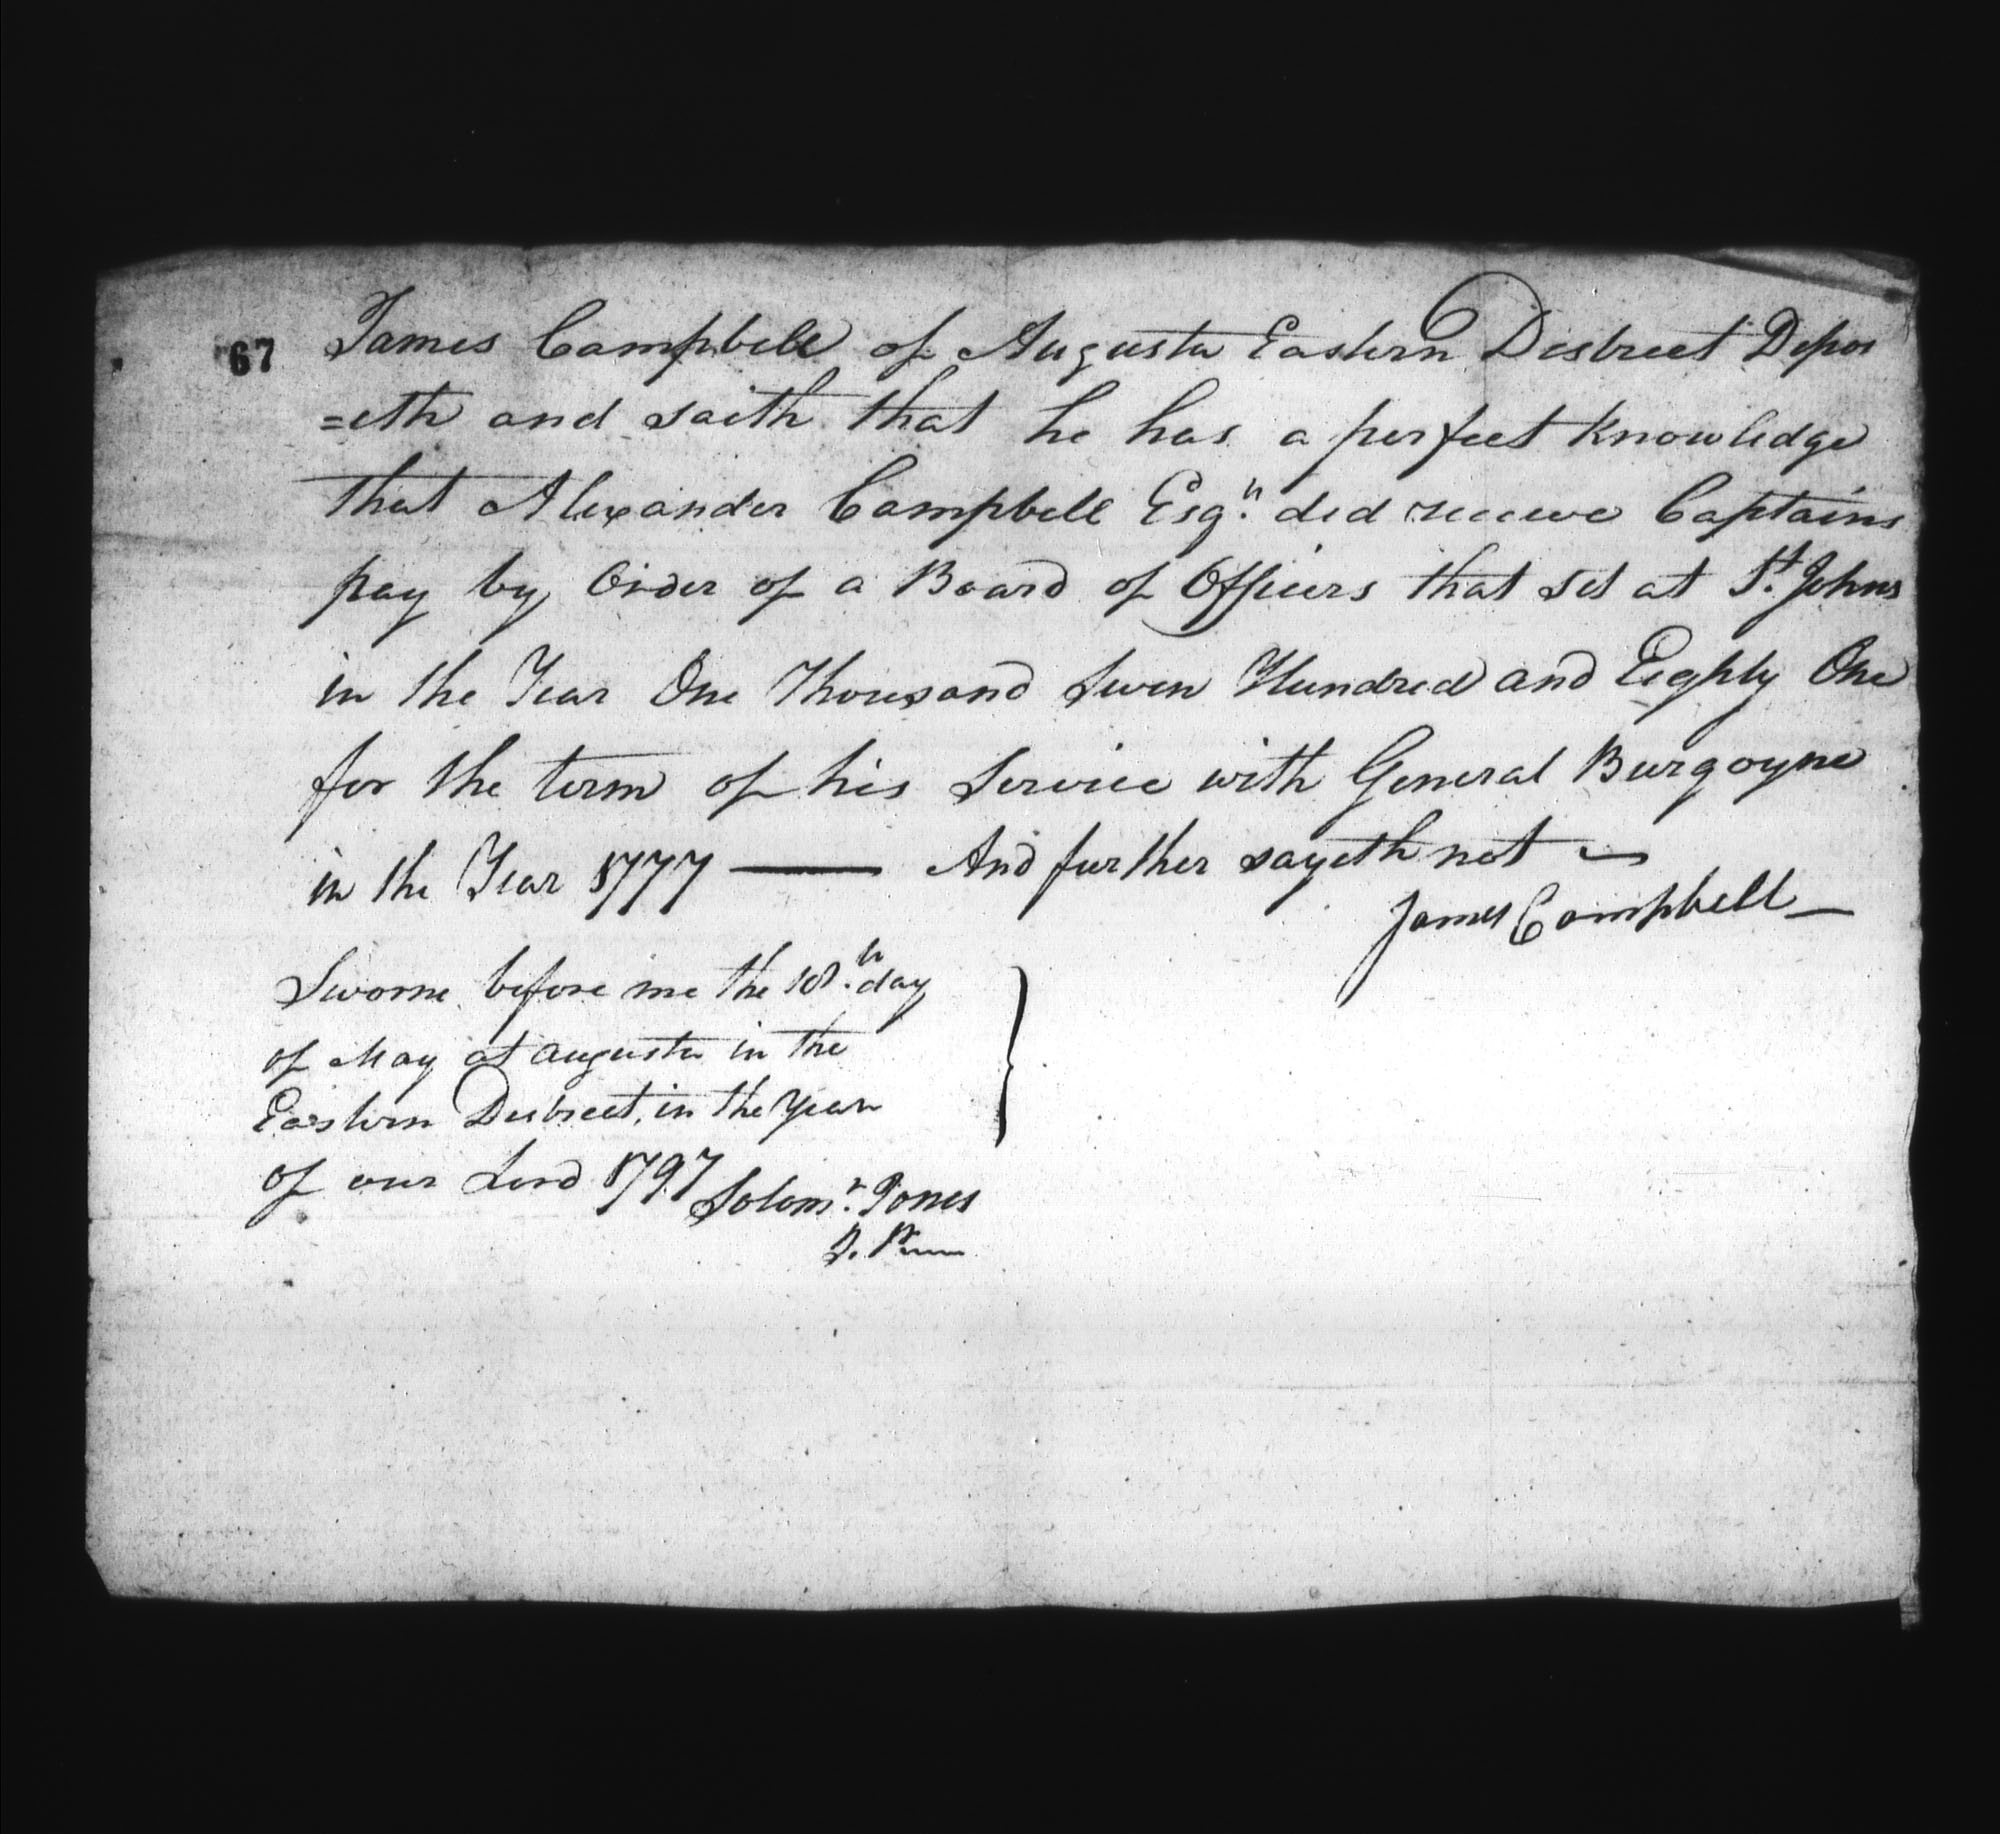 67
James Campbell of Augusta Eastern District Depos
=eth and saith that he has a perfect Knowledge
that Alexander Campbell Esqr. did receive Captains
pay by Order of a Board of Officers that set at St. Johns
in the Year One Thousand Seven Hundred and Eighty One
for the term of his Service with General Burgoyne
in the Year 1777 — And further sayeth not
James Campbell
Sworne before me the 10th. day
of May at augusta in the
Eastern District, in the year
of our Lord 1797
Solomn. Jones